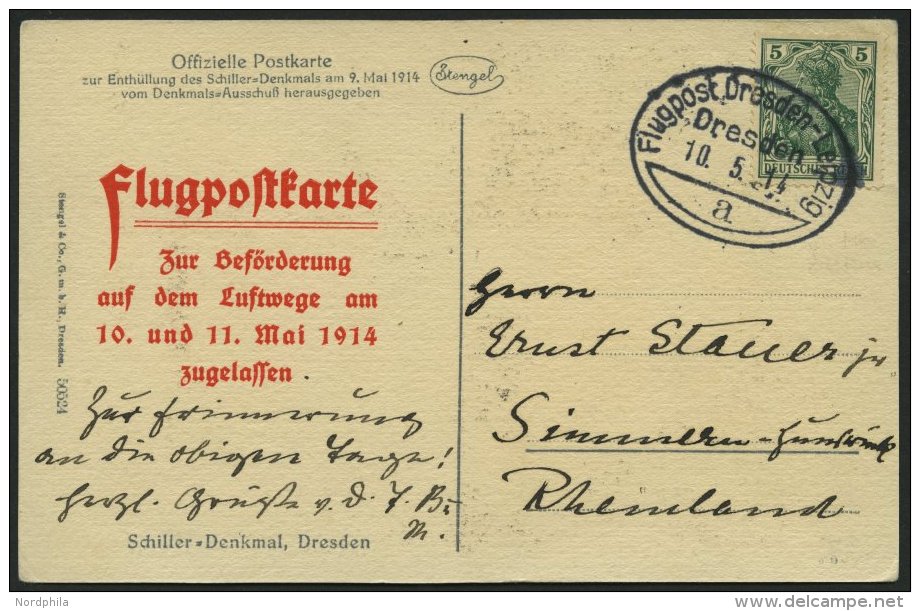 Offizielle Postkarte
zur Enthüllung des Schiller=Denkmals am 9. Mai 1914
vom Denkmals=Ausschuß herausgegeben
Stengel
Flugpoſtkarte
Zur Beförderung
auf dem Luftwege am
10. und 11. Mai 1914
zugelaſſen
Stengel & Co., G. m. b. H., Dresden. 50524
Zur Erinnerung
an die obigen Tage!
herzl. Grüße v. d. T. Br.
M.
Schiller=Denkmal, Dresden
5 5
DEUTSCHES REICH
Flugpost Dresden-Leipzig
Dresden
10. 5. 14
a
Herrn
Ernst Stauer jr
Simmern-Hunsrück
Rheinland
Nordphila
http://www.delcampe.net